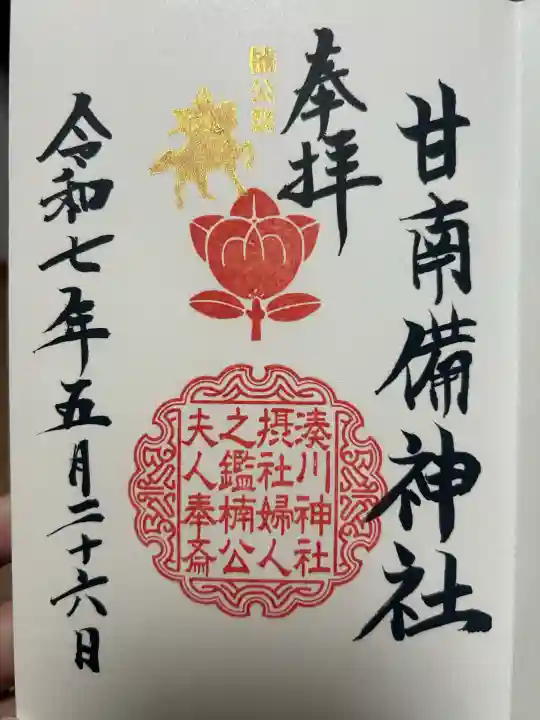 甘南備神社
奉拝
楠公
湊川神社
摂社婦人
之鑑楠公
夫人奉斎
令和七年五月二十六日